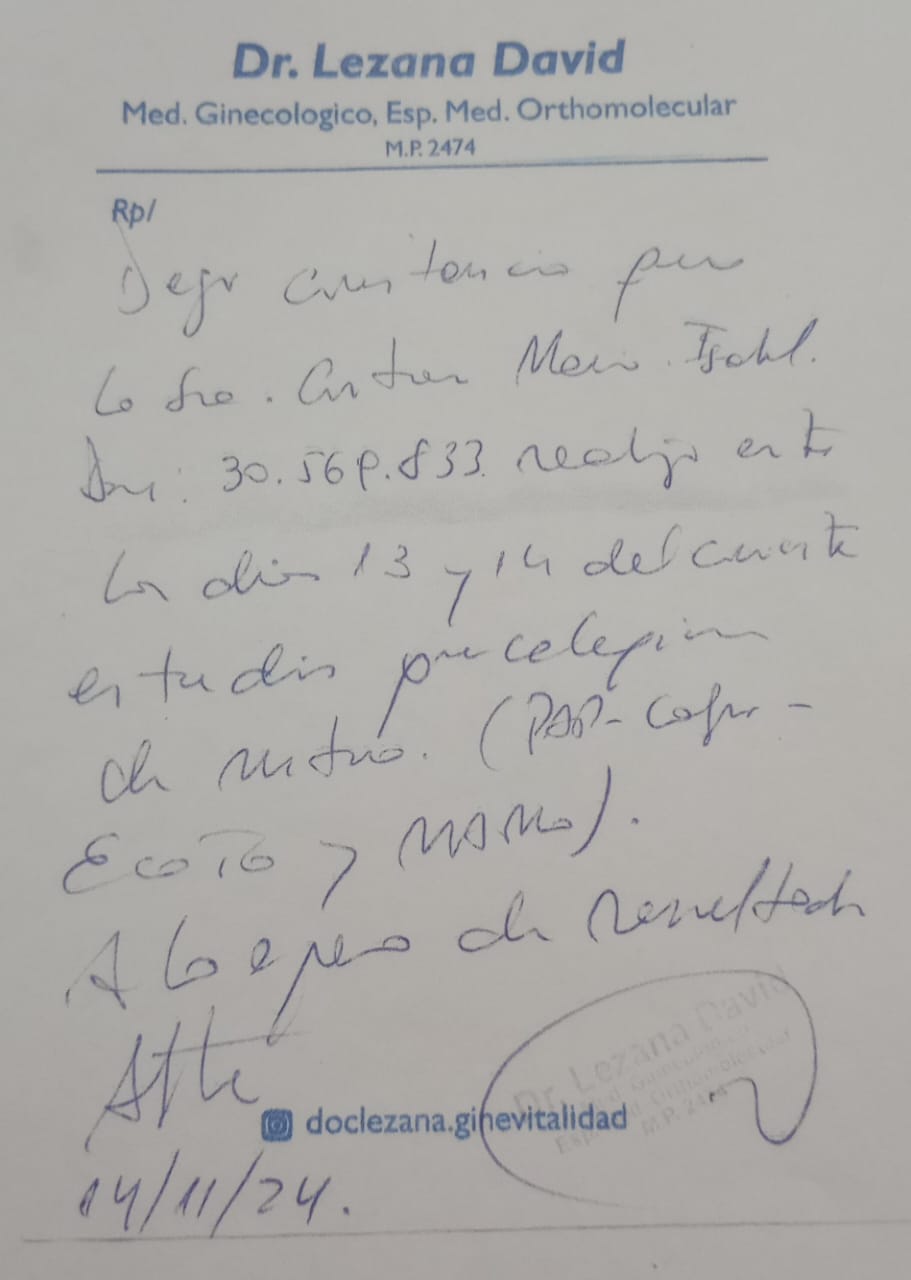 Dr. Lezana David
Med. Ginecologico, Esp. Med. Orthomolecular
M.P. 2474
Rp/
Dejo constancia que
la Sra. Maria Isabel.
Dni: realizo este
los dias 13 y 14 del corriente
estudios
de rutina. (PAP - Colpo -
Eco TV y MAMO).
A la espera de resultados
Atte
doclezana.ginevitalidad
Dr. Lezana David
Esp. Med. Orthomolecular
M.P. 2474
14/11/24.